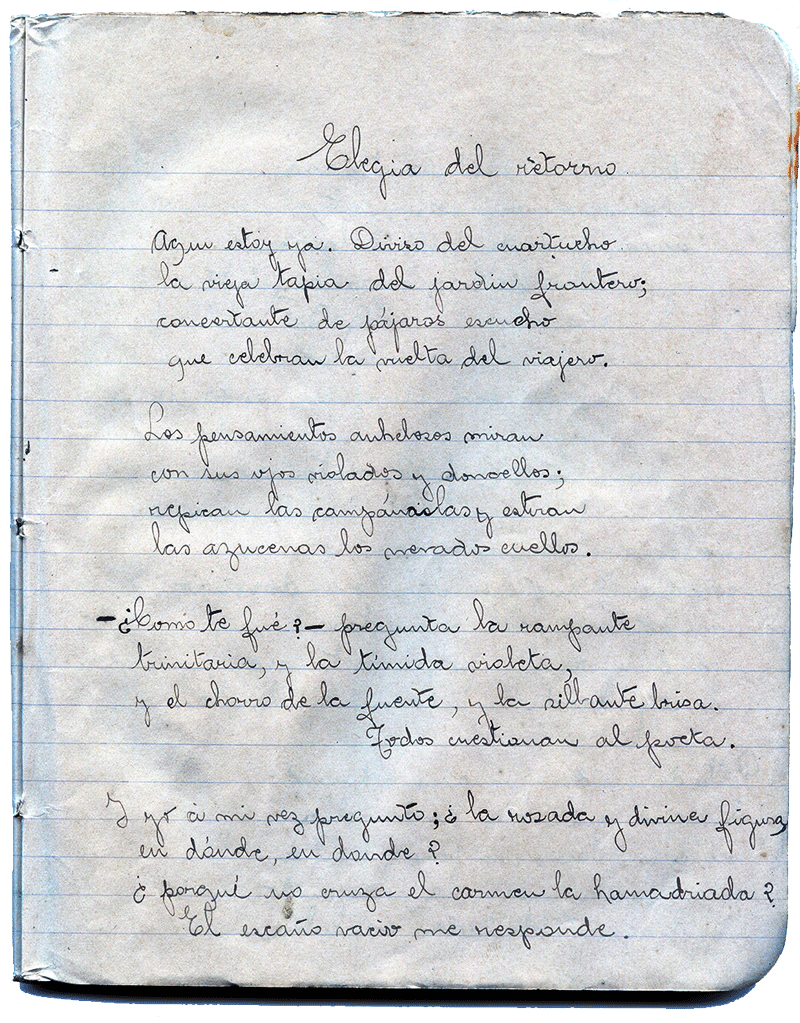 Elegia del retorno
Aqui estoy ya. Diviso del cuartucho
la vieja tapia del jardin frontero;
concertante de pájaros escucho
que celebran la vuelta del viajero.
Los pensamientos anhelosos miran
con sus ojos violados y doncellos;
repican las campánulas y estiran
las azucenas los nevados cuellos.
—¿Como te fué?— pregunta la rampante
trinitaria, y la timida violeta,
y el chorro de la fuente, y la silbante brisa.
Todos cuestionan al poeta.
Y yo à mi vez pregunto; ¿ la rosada y divina figura,
en dónde, en donde?
¿ porqué no cruza el carmen la hamadriada?
El escaño vacio me responde.